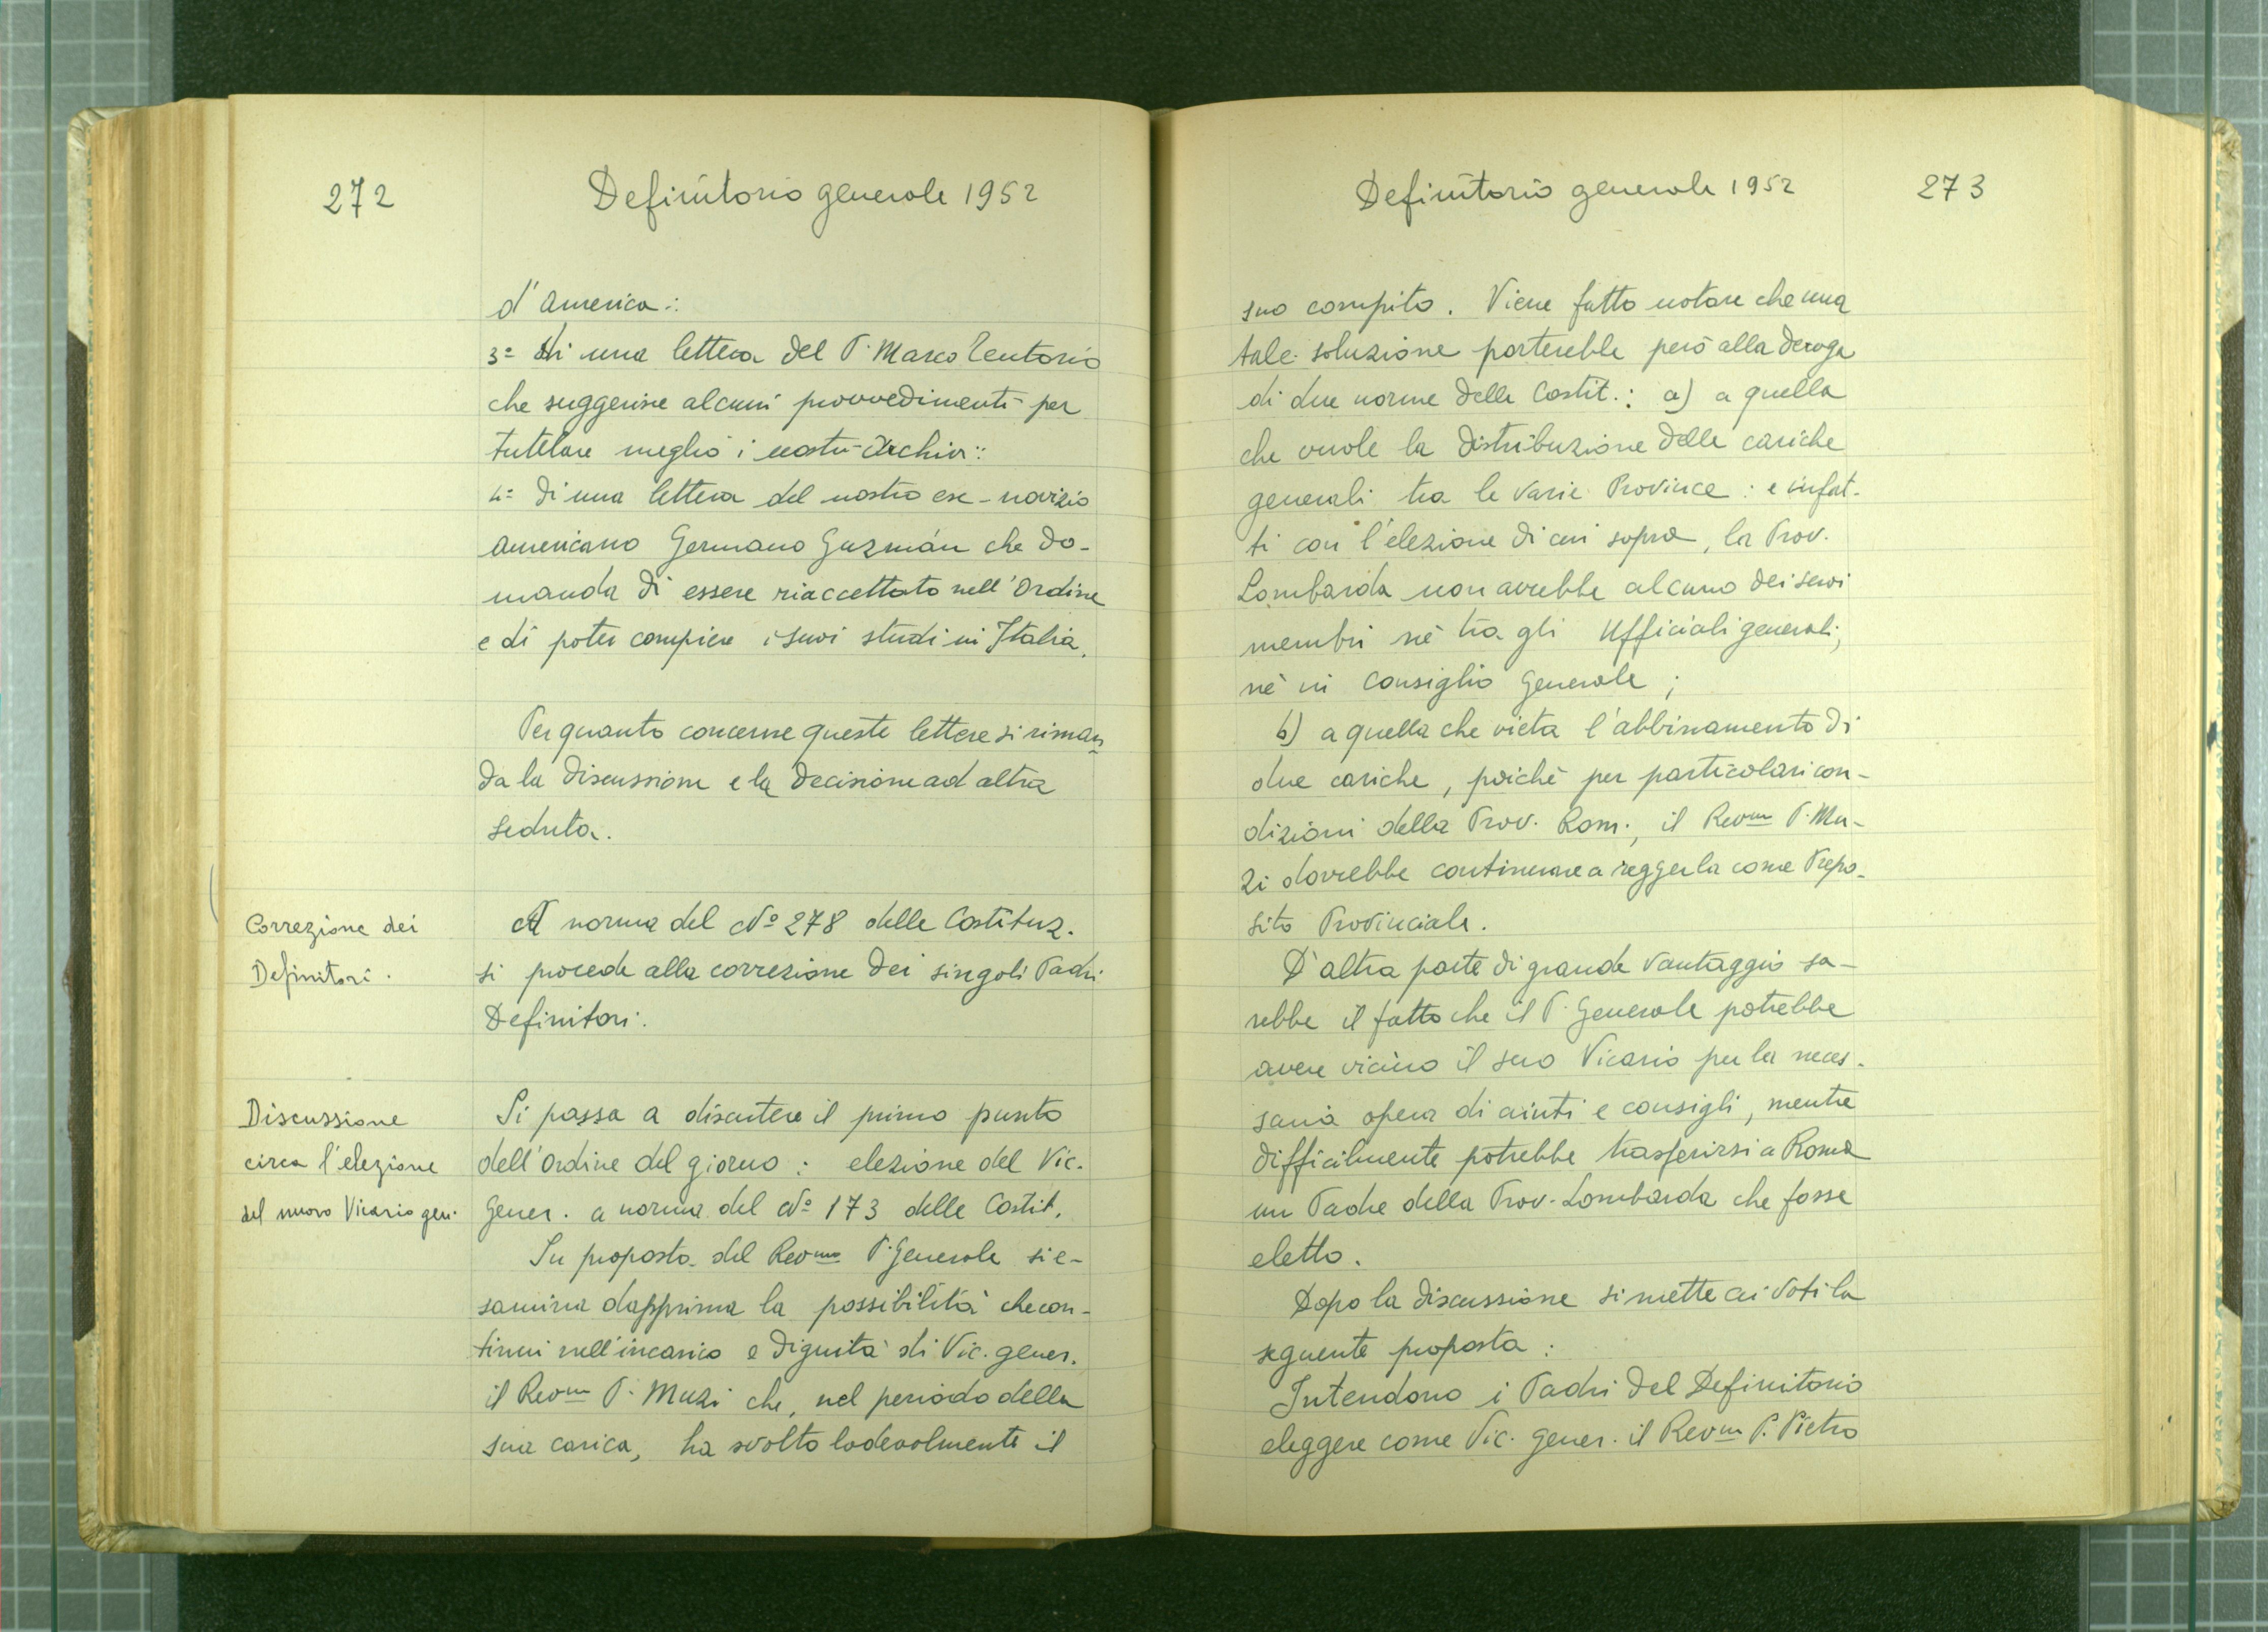 272
Definitorio generale 1952
d'America:
3º di una lettera del P. Marco Tentorio
che suggerisce alcuni provvedimenti per
tutelare meglio i nostri Archivi:
4º di una lettera del nostro ex-novizio
americano Germano Guzmán che do-
manda di essere riaccettato nell'Ordine
e di poter compiere i suoi studi in Italia.
Per quanto concerne queste lettere si riman
da la discussione e la decisione ad altra
seduta.
Correzione dei
Definitori.
A norma del Nº 278 delle Costituz.
si procede alla correzione dei singoli Padri
Definitori.
Discussione
circa l'elezione
del nuovo Vicario gen.
Si passa a discutere il primo punto
dell'Ordine del giorno: elezione del Vic.
Gener. a norma del Nº 173 delle Costit.
Su proposta del Revmo P. Generale si e-
samina dapprima la possibilità che con-
tinui nell'incarico e dignità di Vic. gener.
il Revmo P. Muzi che, nel periodo della
sua carica, ha svolto lodevolmente il
Definitorio generale 1952
273
suo compito. Viene fatto notare che una
tale soluzione porterebbe però alla deroga
di due norme delle Costit.: a) a quella
che vuole la distribuzione delle cariche
generali tra le varie Province: e infat-
ti con l'elezione di cui sopra, la Prov.
Lombarda non avrebbe alcuno dei suoi
membri nè tra gli Ufficiali generali,
nè in Consiglio Generale;
b) a quella che vieta l'abbinamento di
due cariche, poichè per particolari con-
dizioni della Prov. Rom., il Revmo P. Mu-
zi dovrebbe continuare a reggerla come Prepo-
sito Provinciale.
D'altra parte di grande vantaggio sa-
rebbe il fatto che il P. Generale potrebbe
avere vicino il suo Vicario per la neces-
saria opera di aiuti e consigli, mentre
difficilmente potrebbe trasferirsi a Roma
un Padre della Prov. Lombarda che fosse
eletto.
Dopo la discussione si mette ai voti la
seguente proposta:
Intendono i Padri del Definitorio
eleggere come Vic. Gener. il Revmo P. Pietro